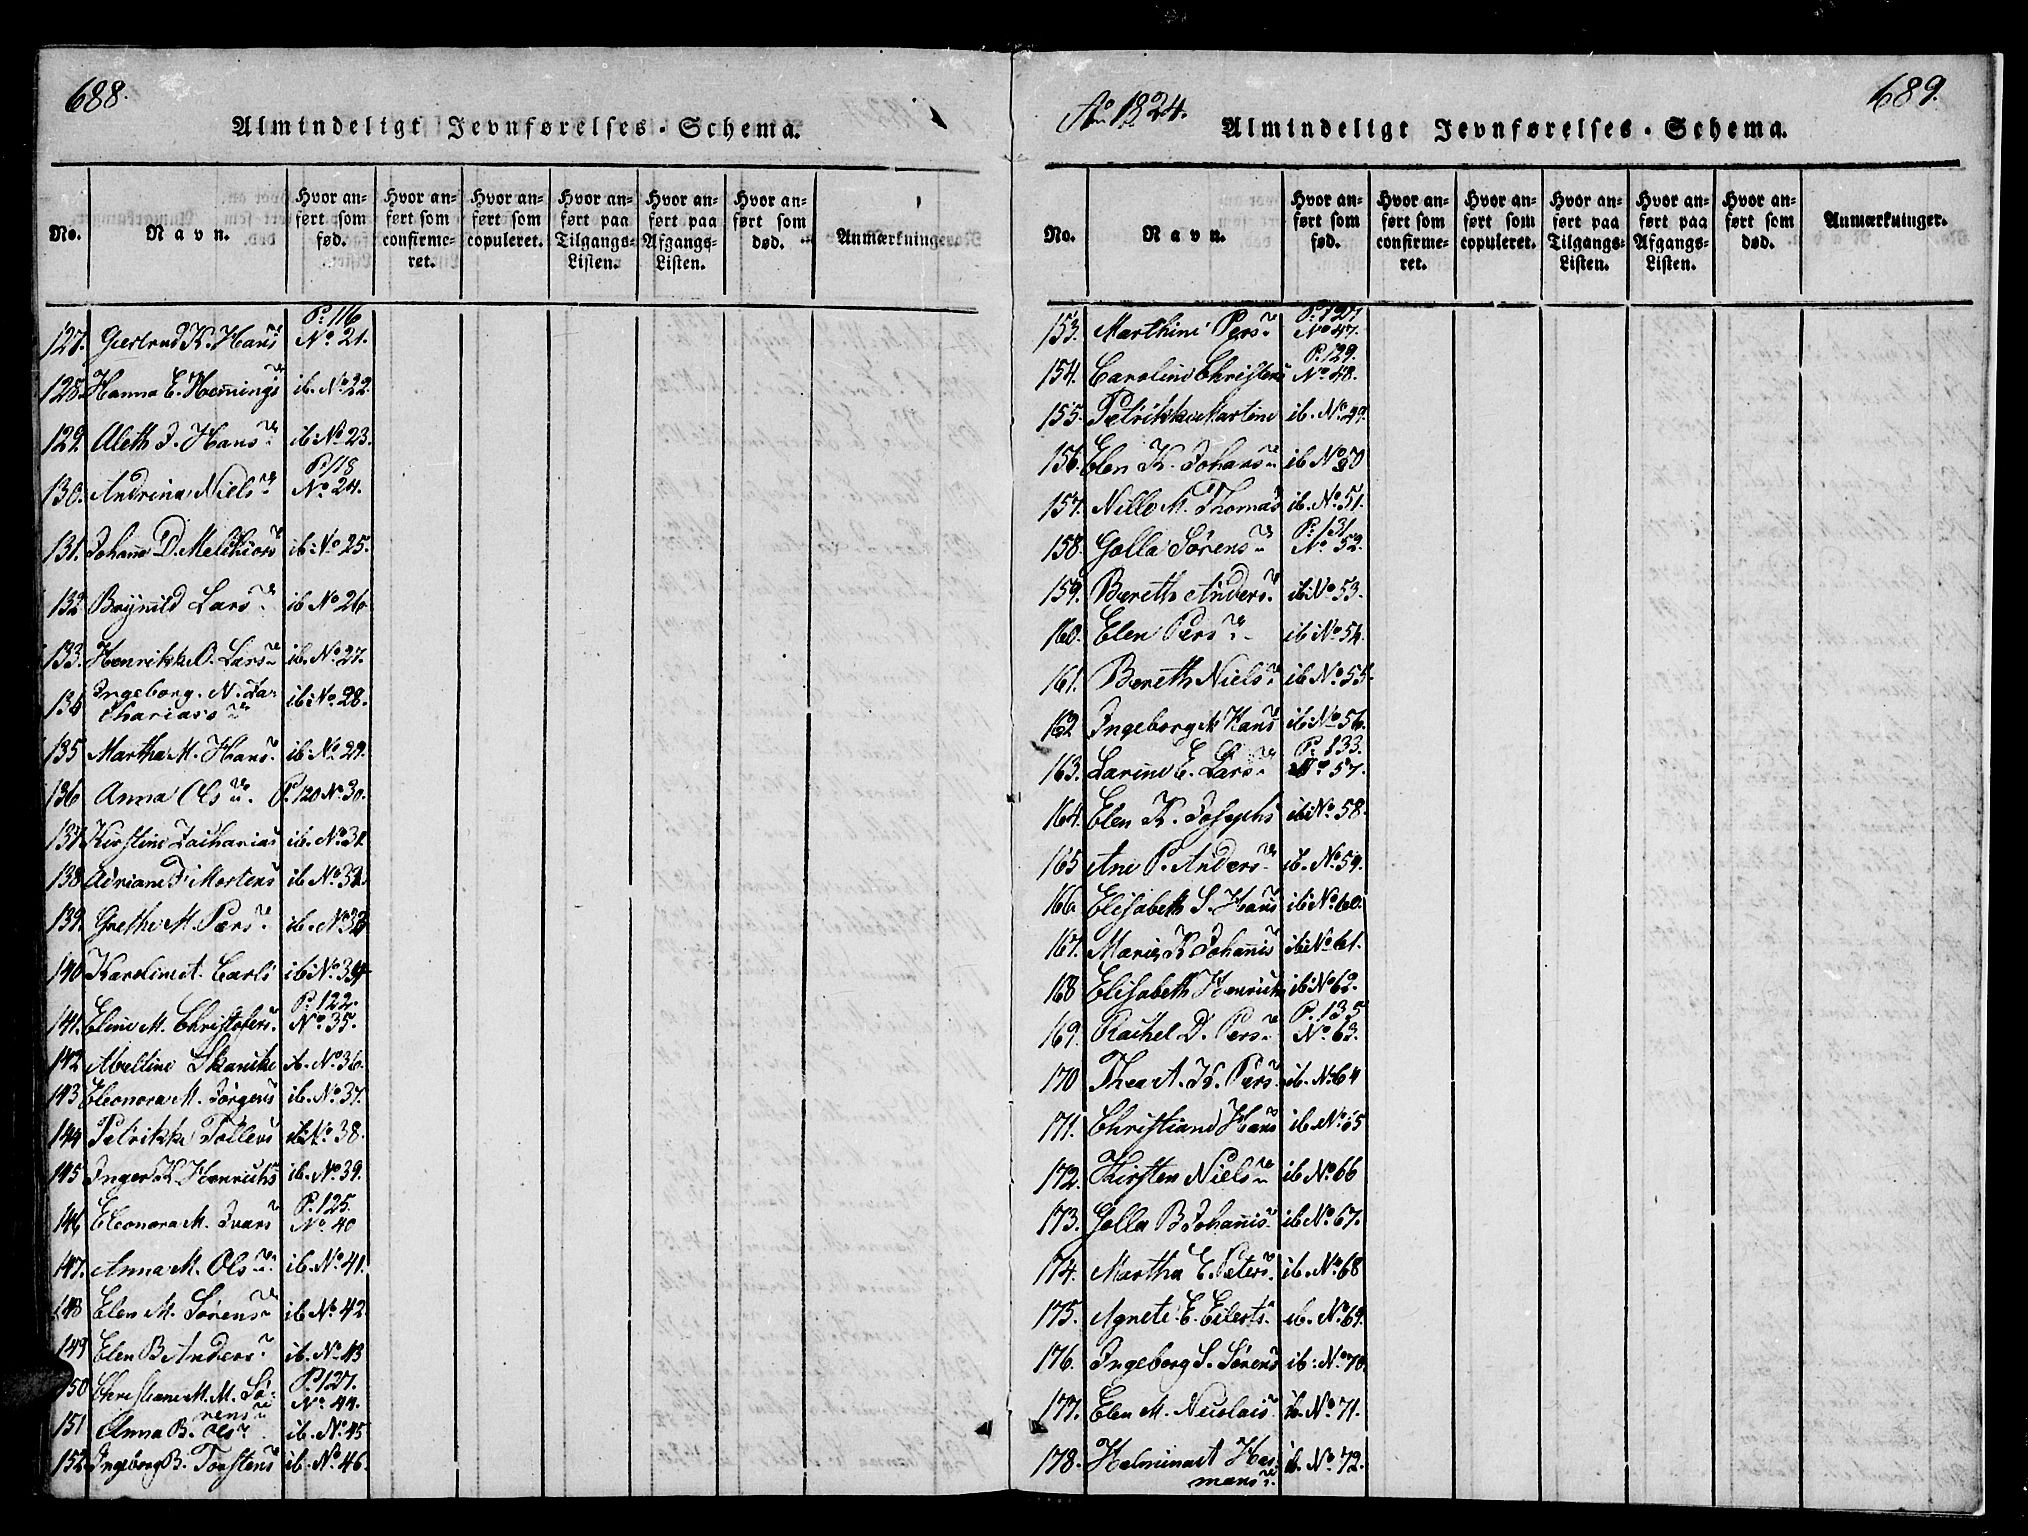 688.
Almindeligt Jevnførelses-Schema.
No.
Navn.
Hvor an-
ført som
fød.
Hvor an-
ført som
confirme-
ret.
Hvor an-
ført som
copuleret.
Hvor an-
ført paa
Tilgangs-
Listen.
Hvor an-
ført paa
Afgangs-
Listen.
Hvor an-
ført som
død.
Anmærkninger.
127. Giertrud K. Hans P. 116 No 21.
128. Hanna E. Hennings ib. No 22.
129. Aleth J. Hans ib. No 23.
130. Andrina Niels P. 118 No 24.
131. Johana D. Melchiors ib: No 25.
132 Brynild Lars ib No 26
133. Henrikke O. Lars ib. No 27.
134 Ingeborg. N. Za-
charias ib: No 28.
135 Martha M. Hans ib: No 29.
136 Anna Ols. P. 120 No 30.
137. Kirstine Zacharias ib. No 31
138 Adriane F. Mortens ib No 32.
139. Grethe M. Pers ib. No 33
140 Karoline A. Carls ib No 34
141. Eline M. Christofers P. 122. No 35.
142 Abelline Skancke ib. No 36.
143 Eleonora M. Jørgens ib. No 37.
144 Petrikke Tollevs ib No 38.
145 Inger K. Henrichs ib. No 39.
146 Eleonora M. Ivars P. 125. No 40
147. Anna M. Ols ib. No 41.
148 Elen M. Sørens ib No 42.
149 Elen B Anders ib. No 43
150 Christiane M. M. Sø-
rens P. 127. No 44.
151 Anna B. Ols ib. No 45
152. Ingeborg B. Torstens ib. No 46.
Ao 1824.
689.
Almindeligt Jevnførelses-Schema.
No.
Navn.
Hvor an-
ført som
fød.
Hvor an-
ført som
confirme-
ret.
Hvor an-
ført som
copuleret.
Hvor an-
ført paa
Tilgangs-
Listen.
Hvor an-
ført paa
Afgangs-
Listen.
Hvor an-
ført som
død.
Anmærkninger.
153. Marthine Pers P. 127 No 47.
154. Caroline Christens P. 129. No 48.
155. Petrikke Martine ib. No 49
156. Elen K. Johans ib No 50
157. Nille M. Thomas ib. No 51.
158. Golla Sørens P. 131 No 52.
159. Bereth Anders ib No 53.
160. Elen Pers ib No 54.
161. Bereth Niels ib No 55.
162. Ingeborg M Hans ib No 56.
163. Larine E. Lars P. 133. No 57.
164. Elen K. Josephs ib No 58.
165 Ane P. Anders ib. No 59.
166. Elisabeth S. Hans ib No 60.
167. Maria K Johannis ib No 61.
168 Elisabeth Henrichs ib No 62.
169. Rachel D. Pers P. 135 No 63.
170 Thea A. K. Pers ib. No 64
171. Christiane Hans ib. No 65
172. Kirsten Niels ib No 66
173. Golla B Johannis ib No 67.
174. Martha E. Peters ib. No 68
175. Agnete E. Eilerts ib. No 69.
176. Ingeborg S. Sørens ib. No 70.
177. Elen M. Nicolais ib. No 71.
178. Helmina A Her-
mans ib. No 72.